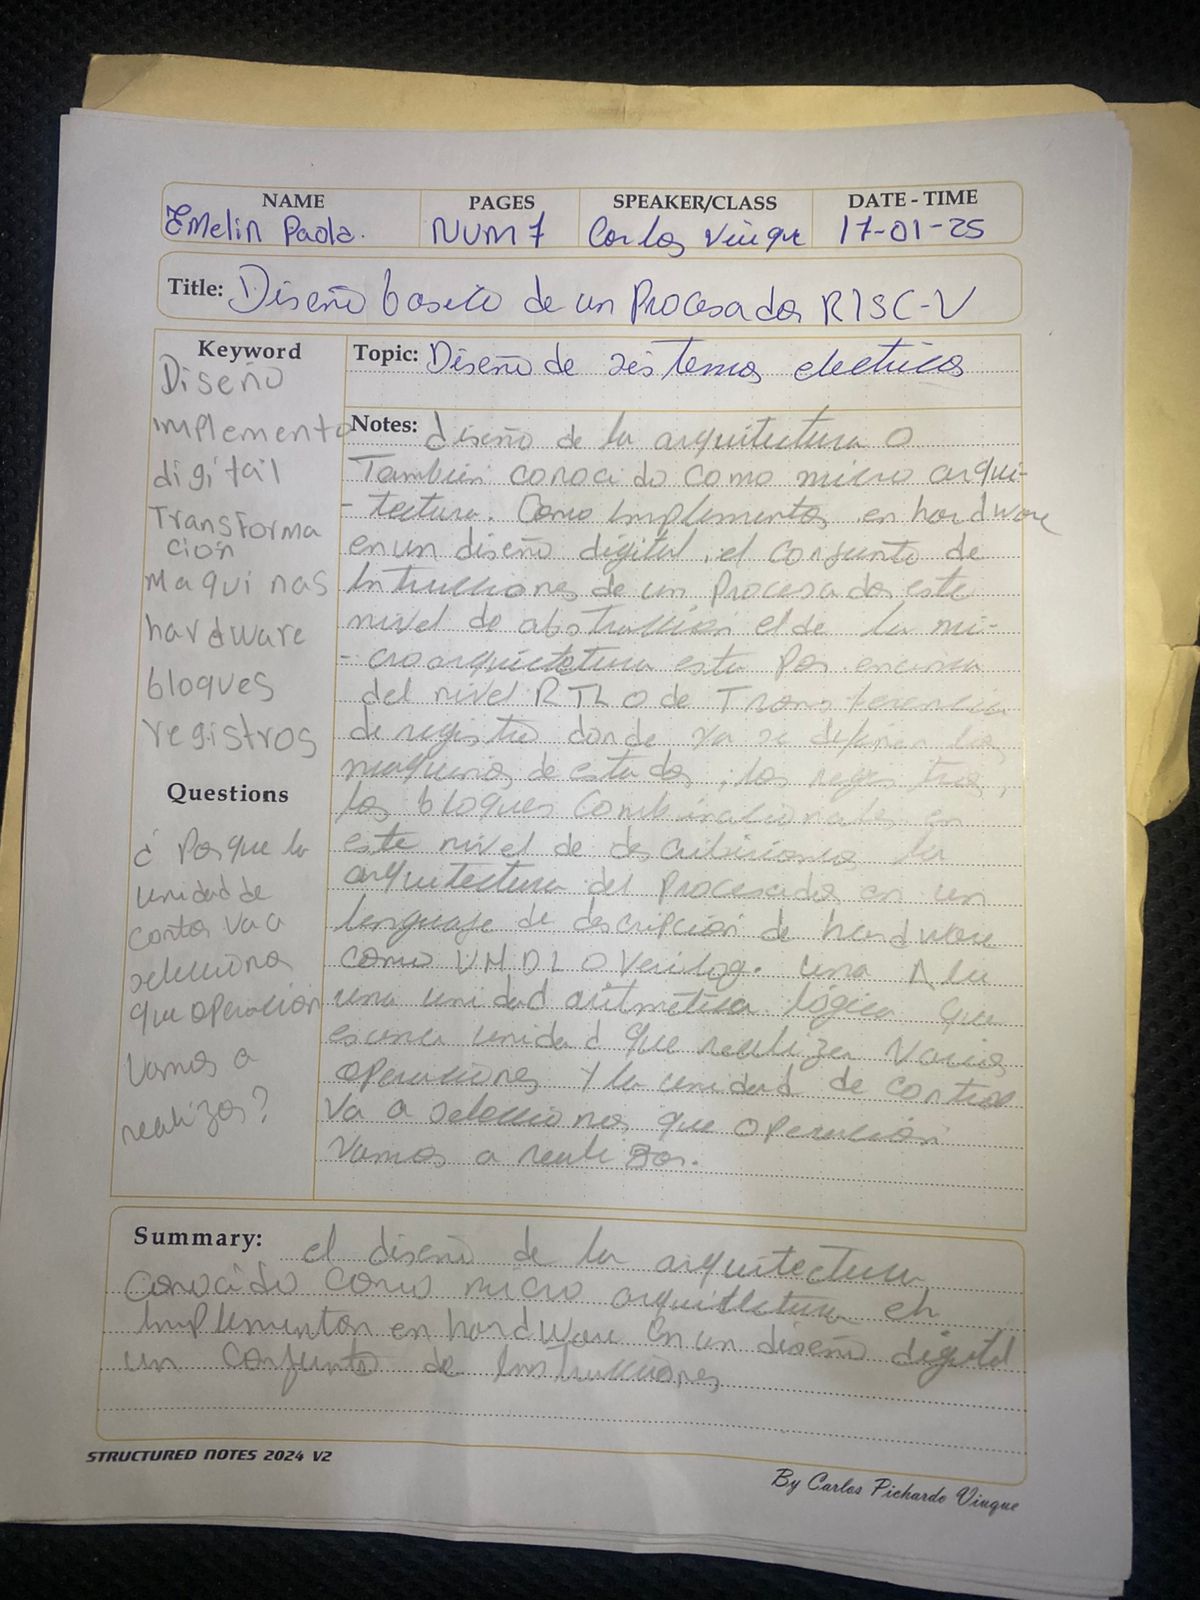 NAME PAGES SPEAKER/CLASS DATE - TIME
Emelin Paola. NUM 7 Carlos Vinque 17-01-25
Title: Diseño basico de un Procesador RISC-V
Keyword
Diseño
implemento
digital
Transforma
ción
maquinas
hardware
bloques
registros
Questions
¿Porque la
unidad de
contor va a
selecciona
que operación
vamos a
realizar?
Topic: Diseño de sistemas electricos
Notes: diseño de la arquitectura o
También conocido como micro arqui-
-tectura. Como implementar en hardware
en un diseño digital, el conjunto de
Intrucciones de un procesador este
nivel de abstracción el de la mi-
-croarquictetura esta por encima
del nivel RTL o de Transferencia
de registro donde ya se definen las
maquinas de estados, los registros,
los bloques combinacionales en
este nivel de describimos la
arquitectura del procesador en un
lenguaje de descripción de hardware
como VHDL o Verilog. una Alu
una unidad aritmetica lógica que
es una unidad que realiza varias
operaciones y la unidad de control
va a seleccionar que operación
vamos a realizar.
Summary: el diseño de la arquitectura
conocido como micro arquitectura en
Implementar en hardware en un diseño digital
un conjunto de instrucciones
STRUCTURED NOTES 2024 V2
By Carlos Pichardo Viuque